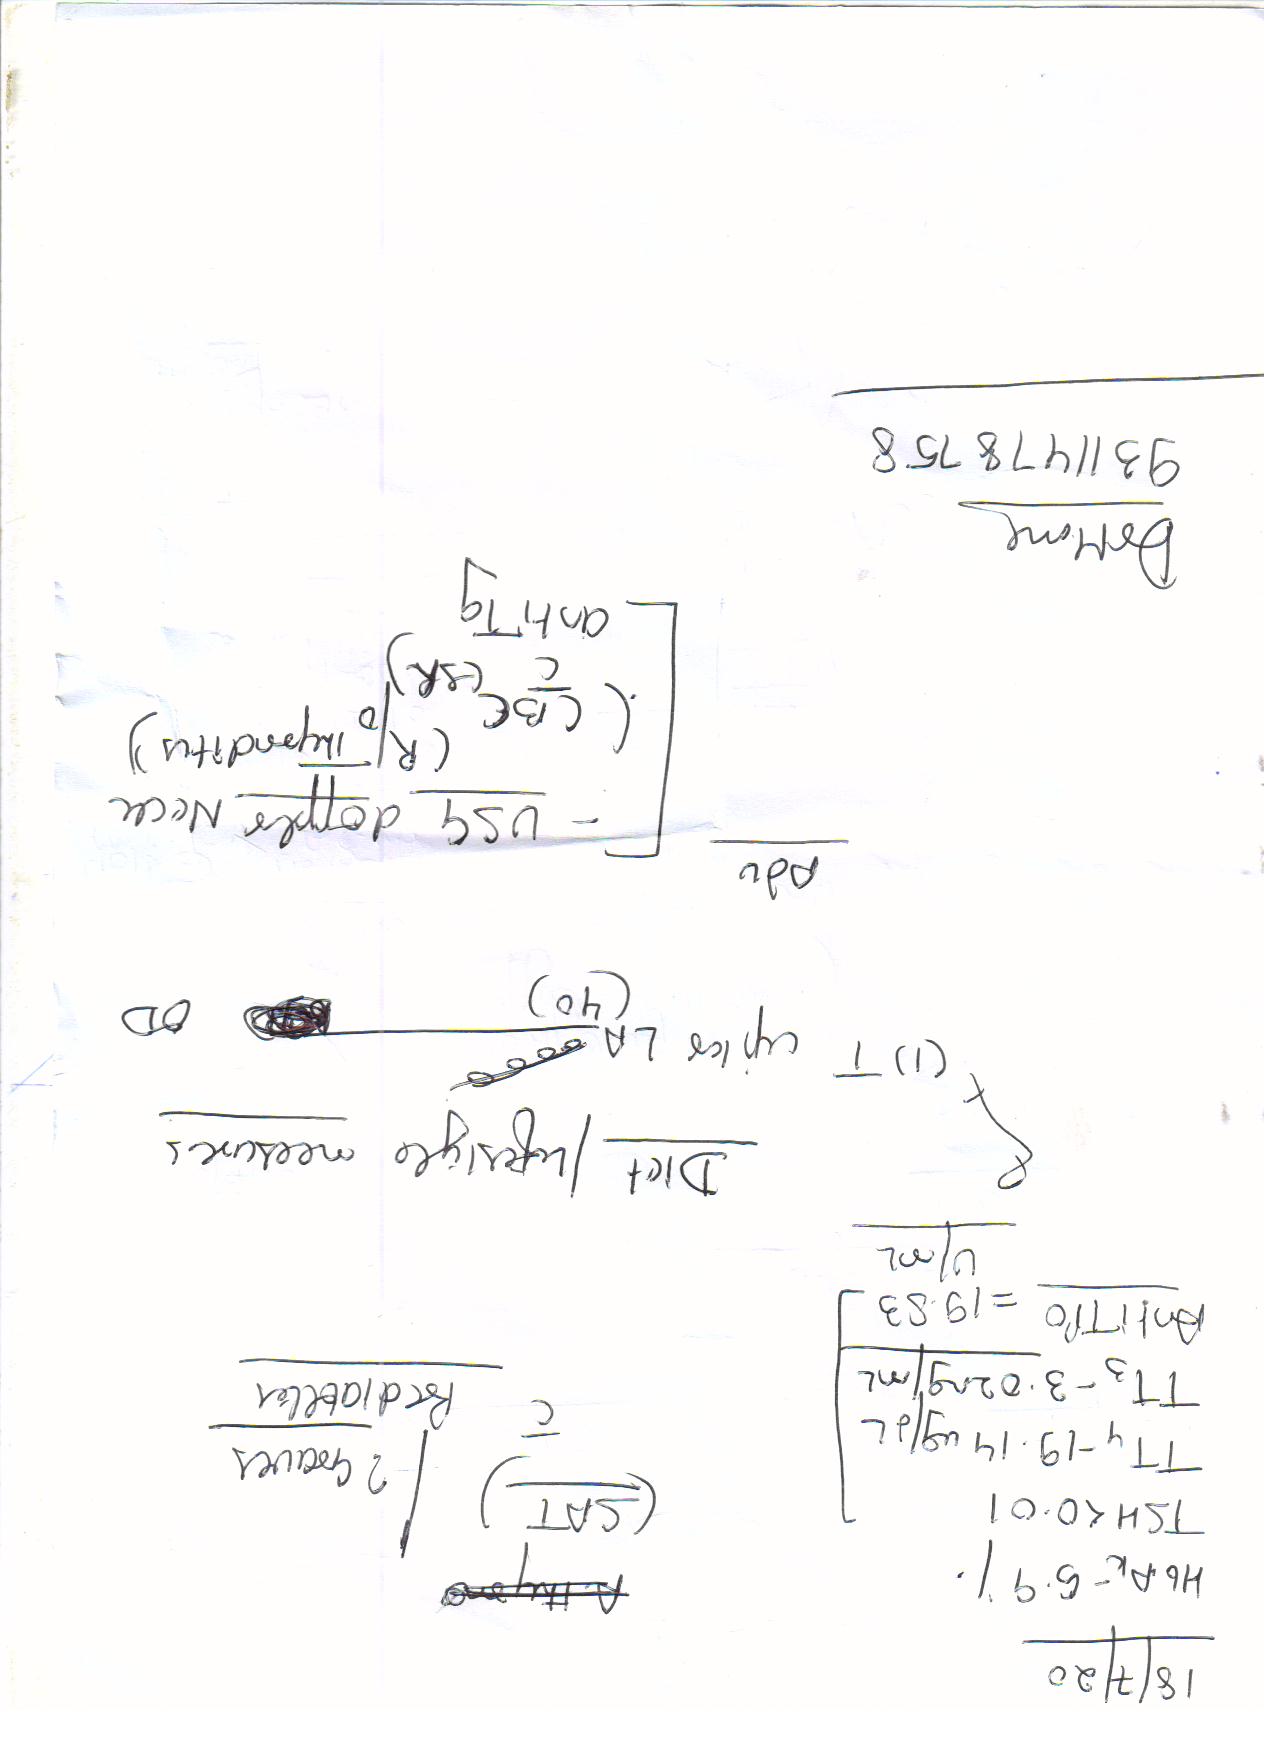 18/7/20
HbA1c - 5.9 %.
TSH < 0.01
TT4 - 19.14 ug/dL
TT3 - 3.02 ng/mL
Anti TPO = 19.83
U/mL
(SAT) / ? Graves
c̄ Prediabetes
Diet / Lifestyle measures
(1) T LA OD
(40)
Adv
- USG doppler Neck
(R/o Thyroiditis)
(CBC c̄ ESR)
anti Tg
9311478758